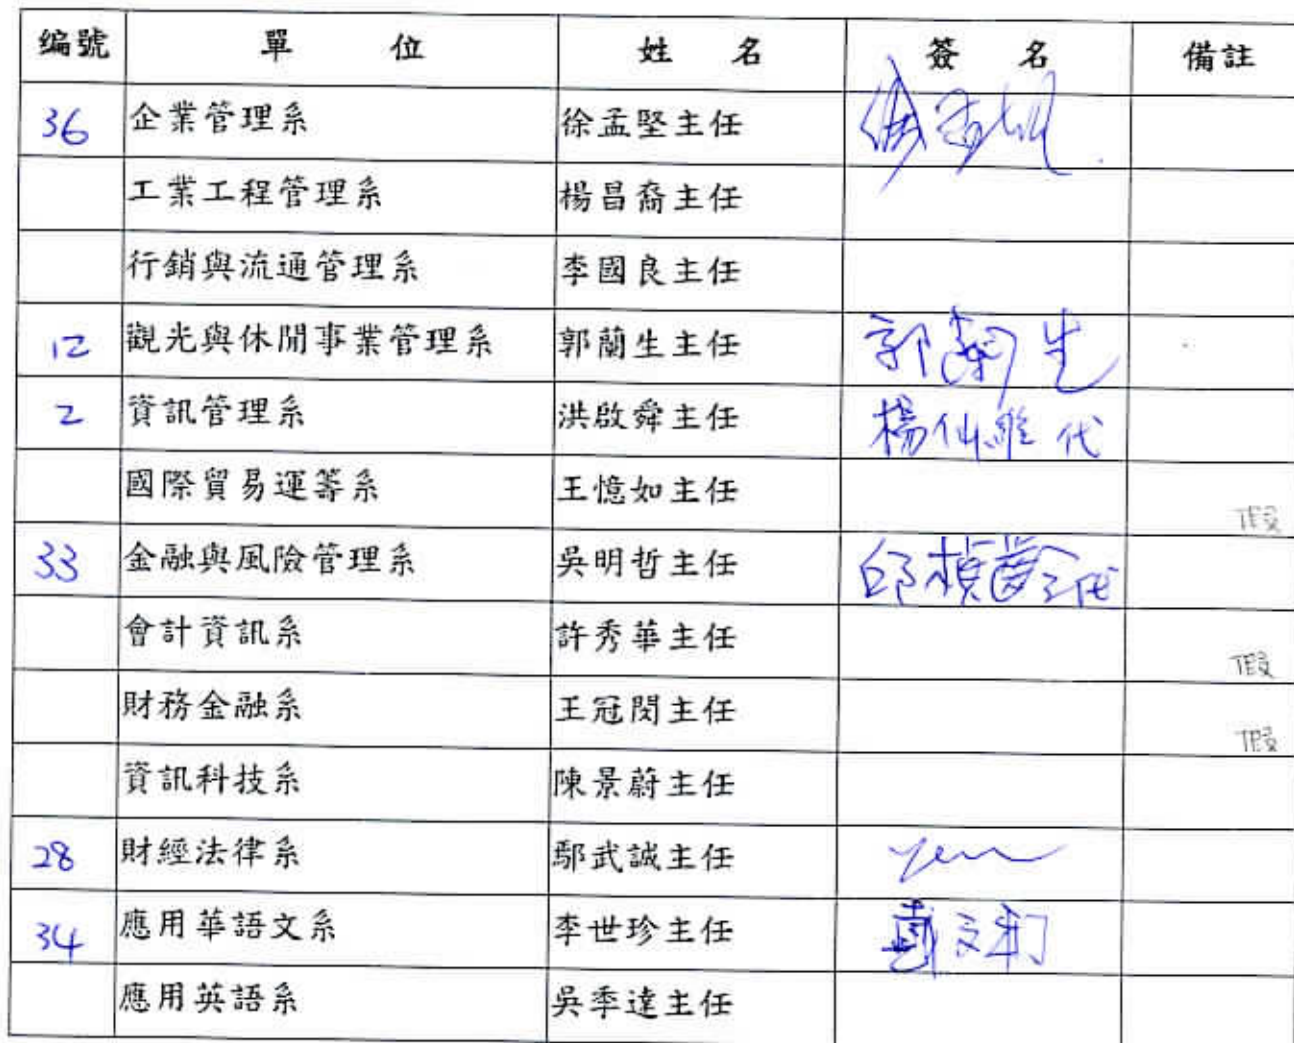 編號 單位 姓名 簽名 備註
36 企業管理系 徐孟堅主任
工業工程管理系 楊昌裔主任
行銷與流通管理系 李國良主任
12 觀光與休閒事業管理系 郭蘭生主任 郭蘭生
2 資訊管理系 洪啟舜主任 楊仙維代
國際貿易運籌系 王憶如主任 假
33 金融與風險管理系 吳明哲主任 代
會計資訊系 許秀華主任 假
財務金融系 王冠閔主任 假
資訊科技系 陳景蔚主任
28 財經法律系 鄢武誠主任 yen
34 應用華語文系 李世珍主任
應用英語系 吳季達主任